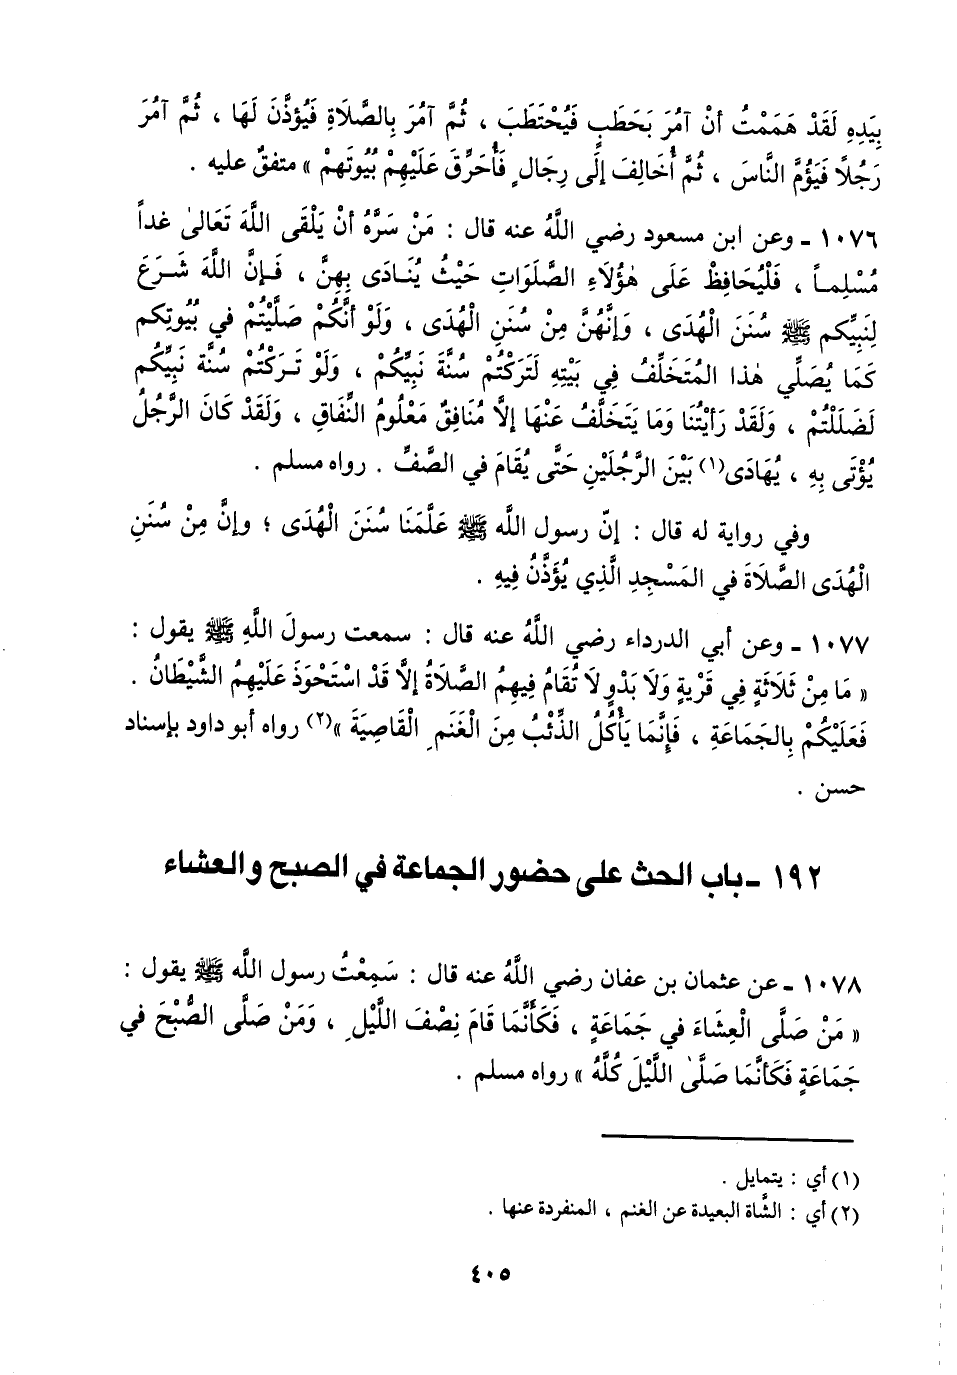 بِيَدِهِ لَقَدْ هَمَمْتُ أنْ آمُرَ بَحَطَبٍ فَيُحْتَطَبَ ، ثُمَّ آمُرَ بِالصَّلَاةِ فَيُؤذَّنَ لَهَا ، ثُمَّ آمُرَ
رَجُلاً فَيَؤُمَّ النَّاسَ ، ثُمَّ أُخَالِفَ إلَى رِجَالٍ فَأُحَرِّقَ عَلَيْهِمْ بُيُوتَهِمْ » متفقٌ عليه .
١٠٧٦ ـ وعن ابن مسعود رضي اللَّهُ عنه قال : مَنْ سَرَّهُ أنْ يَلْقَى اللَّهَ تَعَالىٰ غداً
مُسْلِمـاً ، فَلْيُحَافِظْ عَلَى هٰؤُلَاءِ الصَّلَوَاتِ حَيْثُ يُنَـادَى بِهِنَّ ، فَـإنَّ اللَّهَ شَـرَعَ
لِنَبِيِّكم ﷺ سُنَنَ الْهُدَى ، وَإنَّهُنَّ مِنْ سُنَنِ الْهُدَى ، وَلَوْ أنَّكُمْ صَلَّيْتُمْ في بُيُوتِكم
كَمَا يُصَلِّي هٰذا المُتَخَلِّفُ فِي بَيْتِهِ لَتَرَكْتُمْ سُنَّةَ نَبِيِّكُمْ ، وَلَوْ تَـرَكْتُمْ سُنَّة نَبِيِّكُم
لَضَلَلْتُمْ ، وَلَقَدْ رَأيْتُنَا وَمَا يَتَخَلَّفُ عَنْهَا إلَّا مُنَافِقٌ مَعْلُومُ النِّفَاقِ ، وَلَقَدْ كَانَ الرَّجُلُ
يُؤْتَى بِهِ ، يُهَادَى(١) بَيْنَ الرَّجُلَيْنِ حَتَّى يُقَامَ في الصَّفِّ . رواه مسلم .
وفي رواية له قال : إنّ رسول اللَّه ﷺ عَلَّمَنَا سُنَنَ الْهُدَى ؛ وإنَّ مِنْ سُنَنِ
الْهُدَى الصَّلَاةَ في المَسْجِدِ الَّذِي يُؤَذَّنُ فِيهِ .
١٠٧٧ ـ وعن أبي الدرداء رضي اللَّهُ عنه قال : سمعت رسولَ اللَّهِ ﷺ يقول :
« مَا مِنْ ثَلَاثَةٍ فِي قَرْيةٍ وَلَا بَدْوٍ لَا تُقَامُ فِيهِمُ الصَّلَاةُ إلَّا قَدْ اسْتَحْوَذَ عَلَيْهِمُ الشَّيْطَانُ .
فَعَلَيْكُمْ بِالجَمَاعَةِ ، فَإِنَّمَا يَأْكُلُ الذِّئْبُ مِنَ الْغَنَمِ الْقَاصِيَةَ »(٢) رواه أبو داود بإسناد
حسن .
١٩٢ ـ باب الحث على حضور الجماعة في الصبح والعشاء
١٠٧٨ ـ عن عثمان بن عفان رضي اللَّهُ عنه قال : سَمِعْتُ رسول اللَّه ﷺ يقول :
« مَنْ صَلَّى الْعِشَاءَ في جَمَاعَةٍ ، فَكَأنَّمَا قَامَ نِصْفَ اللَّيْلِ ، وَمَنْ صَلَّى الصُّبْحَ في
جَمَاعَةٍ فَكَأنَّمَا صَلَّىٰ اللَّيْلَ كُلَّهُ » رواه مسلم .
(١) أي : يتمايل .
(٢) أي : الشَّاة البعيدة عن الغنم ، المنفردة عنها .
٤٠٥